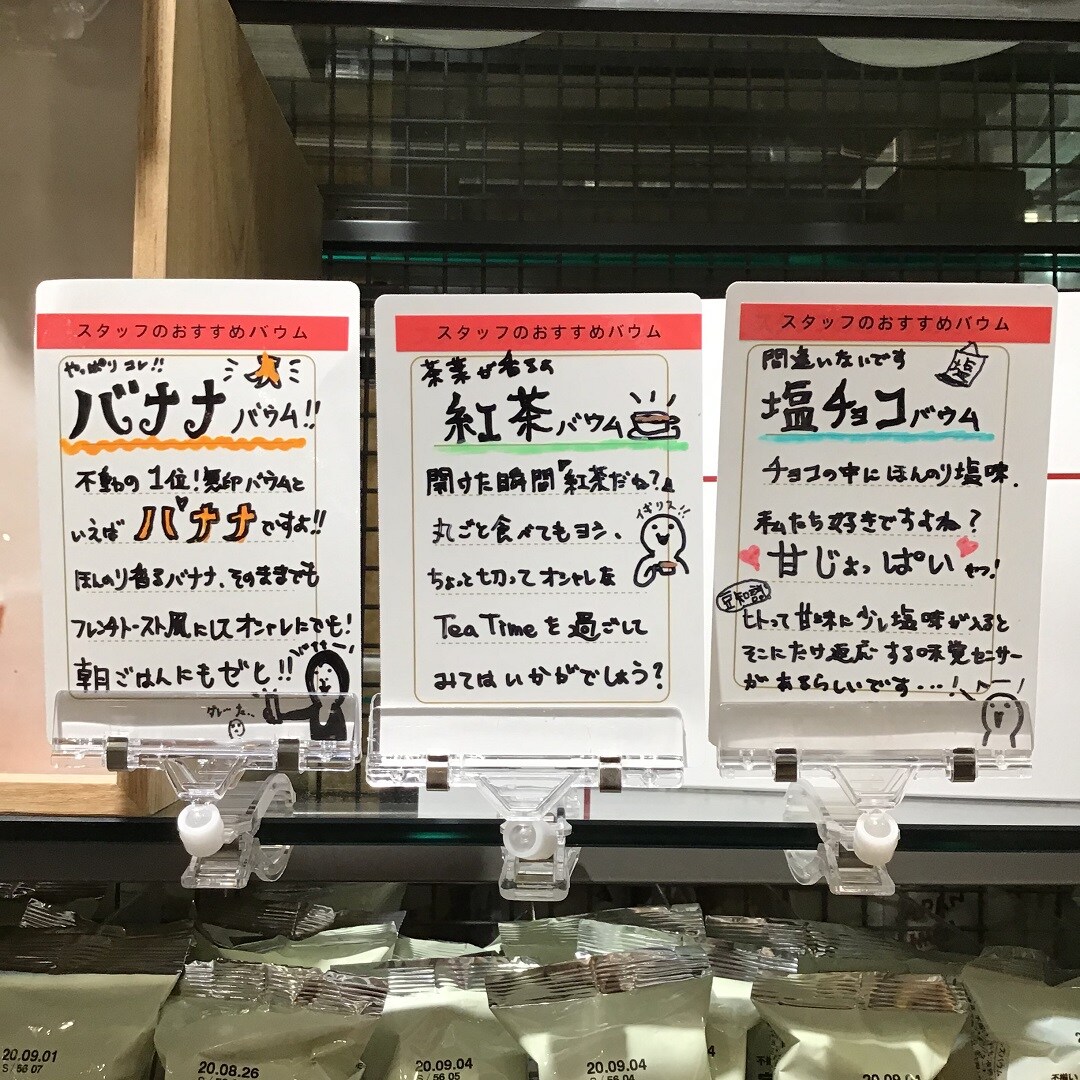 スタッフのおすすめバウム
やっぱりコレ!!
バナナバウム!!
不動の1位!無印バウムと
いえばバナナですよ!!
ほんのり香るバナナ、そのままでも
フレンチトースト風にしてオシャレにでも!
朝ごはんにもぜひ!!
スタッフのおすすめバウム
茶葉が香るの
紅茶バウム
開けた瞬間「紅茶だね?」
イギリス!!
丸ごと食べてもヨシ、
ちょっと切ってオシャレな
Tea Timeを過ごして
みてはいかがでしょう?
スタッフのおすすめバウム
間違いないです
塩
塩チョコバウム
チョコの中にほんのり塩味.
私たち好きですよね?
甘じょっぱいやつ!
豆知識
ヒトって甘味に少し塩味が入ると
そこにだけ反応する味覚センサー
があるらしいです…!
20.09.01
S/56 07
20.08.26
20.09.04
S/56 05
20.09.04
S/56 04